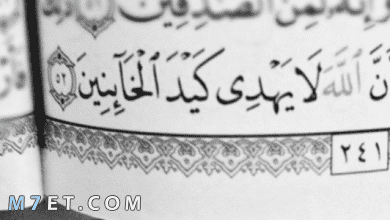 وَإِنَّهُۥ لَمِنَ ٱلصَّٰدِقِينَ ٥١
أَنَّ ٱللَّهَ لَا يَهْدِى كَيْدَ ٱلْخَآئِنِينَ ٥٢
٢٤١
M7ET.COM